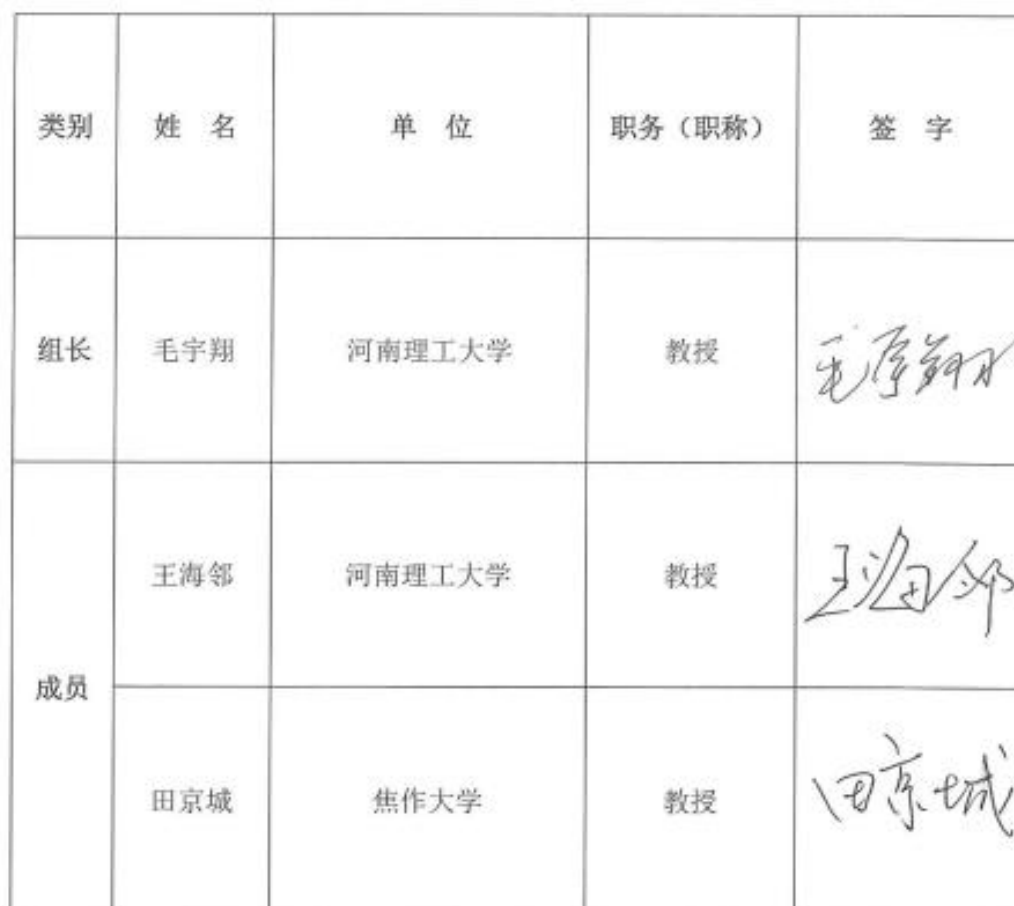 类别 姓 名 单 位 职务（职称） 签 字
组长 毛宇翔 河南理工大学 教授 毛宇翔
成员
王海邻 河南理工大学 教授 王海邻
田京城 焦作大学 教授 田京城